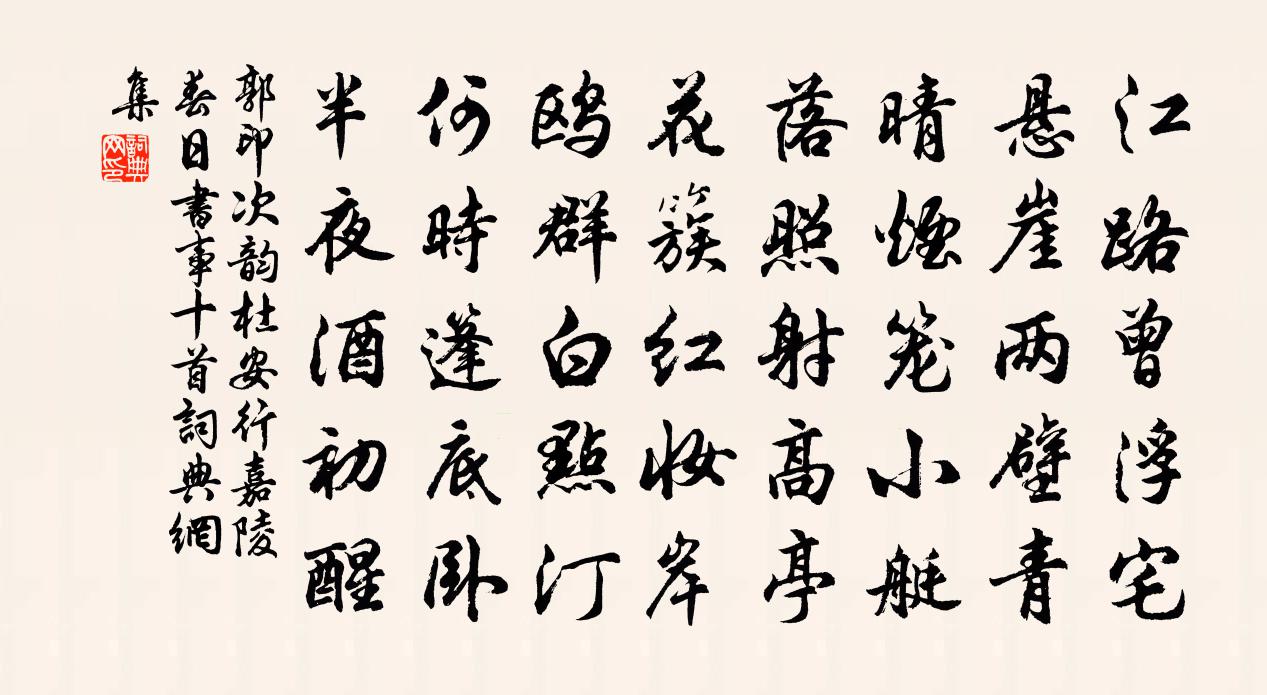 江路曾浮宅
悬崖两壁青
晴烟笼小艇
落照射高亭
花簇红妆岸
鸥群白點汀
何時蓬底卧
半夜酒初醒
郭印次韵杜安行嘉陵
春日書事十首詞典網
集
詞典网印